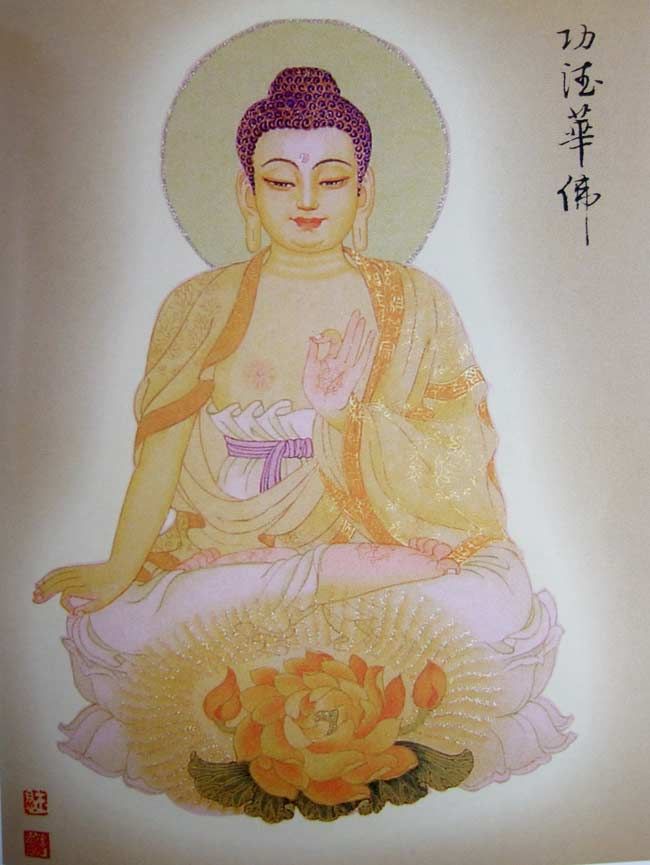 功德華佛